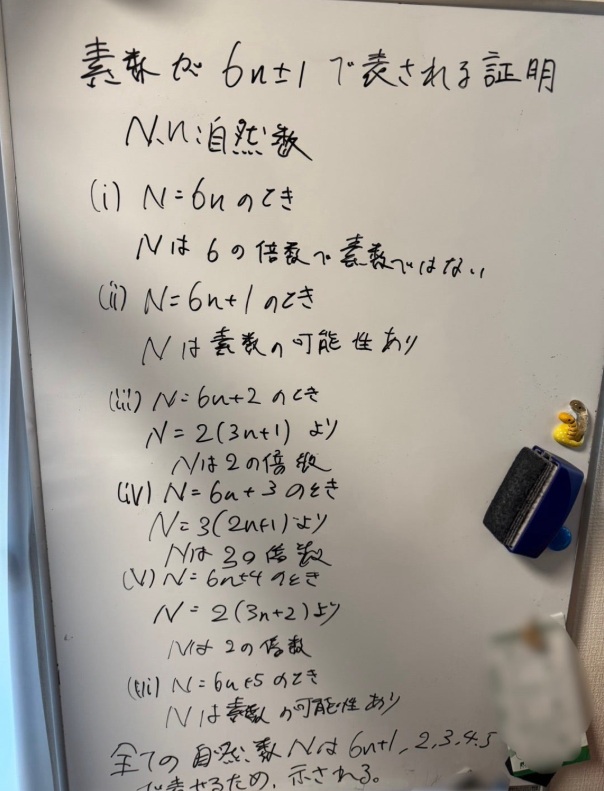 素数が6n±1で表される証明
N、n:自然数
(i) N=6nのとき
Nは6の倍数で素数ではない
(ii) N=6n+1のとき
Nは素数の可能性あり
(iii) N=6n+2のとき
N=2(3n+1)より
Nは2の倍数
(iv) N=6n+3のとき
N=3(2n+1)より
Nは3の倍数
(v) N=6n+4のとき
N=2(3n+2)より
Nは2の倍数
(vi) N=6n+5のとき
Nは素数の可能性あり
全ての自然数Nは6n+1,2,3,4,5
で表せるため、示される。